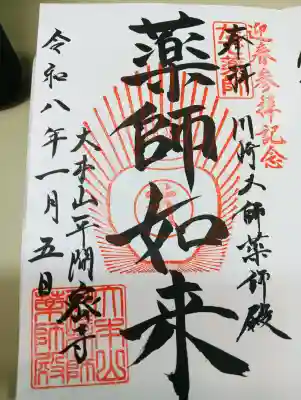 迎春参拝記念
奉拝
川崎大師薬師殿
薬師如来
大本山平間寺
令和八年一月五日
大本山
薬師殿